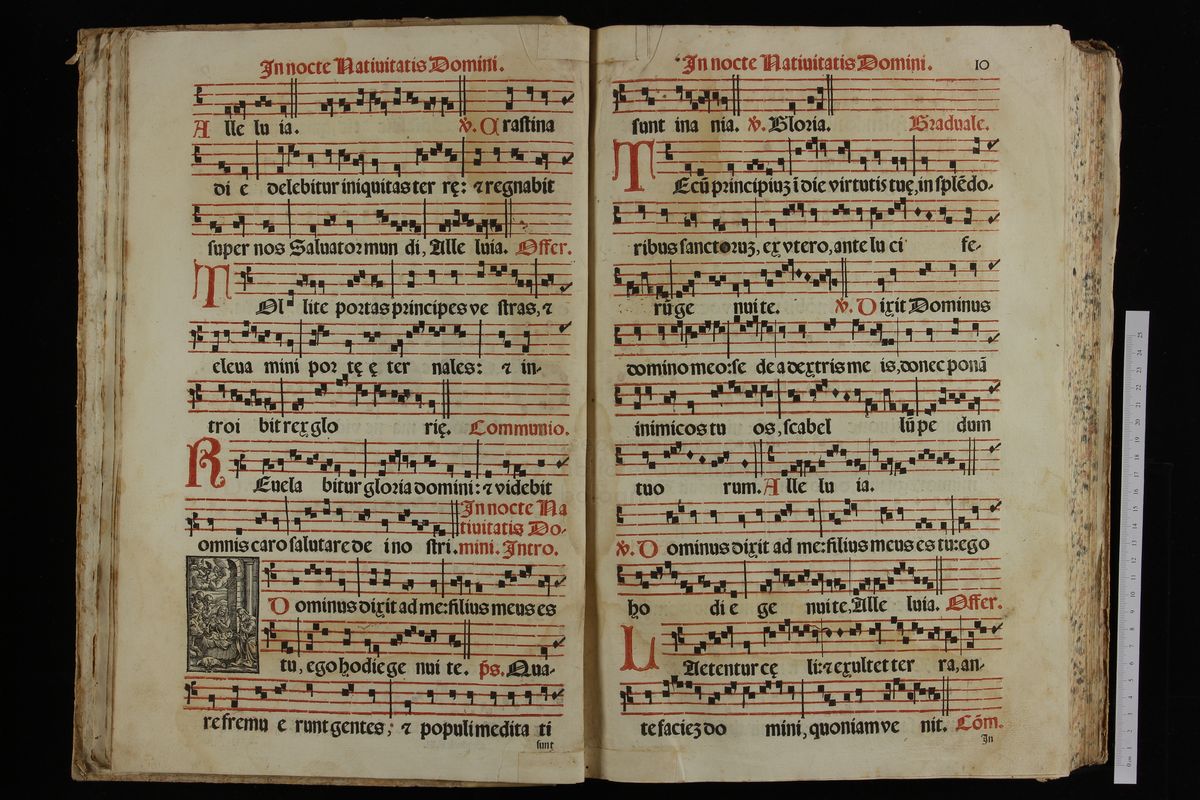 In nocte Natiuitatis Domini.
A lle lu ia. ℣. C rastina
di e delebitur iniquitas ter rę: ⁊ regnabit
super nos Saluator mun di, Alle luia. Offer.
T Ol lite portas principes ve stras, ⁊
eleua mini por tę ę ter nales: ⁊ in-
troi bit rex glo rię. Communio.
R Euela bitur gloria domini: ⁊ videbit
In nocte Na
tiuitatis Do-
omnis caro salutare de i no stri. mini. Intro.
D ominus dixit ad me: filius meus es
tu, ego hodie ge nui te. p̄s. Qua-
re fremu e runt gentes, ⁊ populi medita ti
sunt
In nocte Natiuitatis Domini. 10
sunt ina nia. ℣. Gloria. Graduale.
T Ecū principiuʒ ī die virtutis tuę, in splēdo-
ribus sanctoruʒ, ex vtero, ante lu ci fe-
rū ge nui te. ℣. D ixit Dominus
domino meo: se de a dextris me is, donec ponā
inimicos tu os, scabel lū pe dum
tuo rum. A lle lu ia.
℣. D ominus dixit ad me: filius meus es tu: ego
ho di e ge nui te, Alle luia. Offer.
L Aetentur cę li: ⁊ exultet ter ra, an-
te facieʒ do mini, quoniam ve nit. Cōm.
In